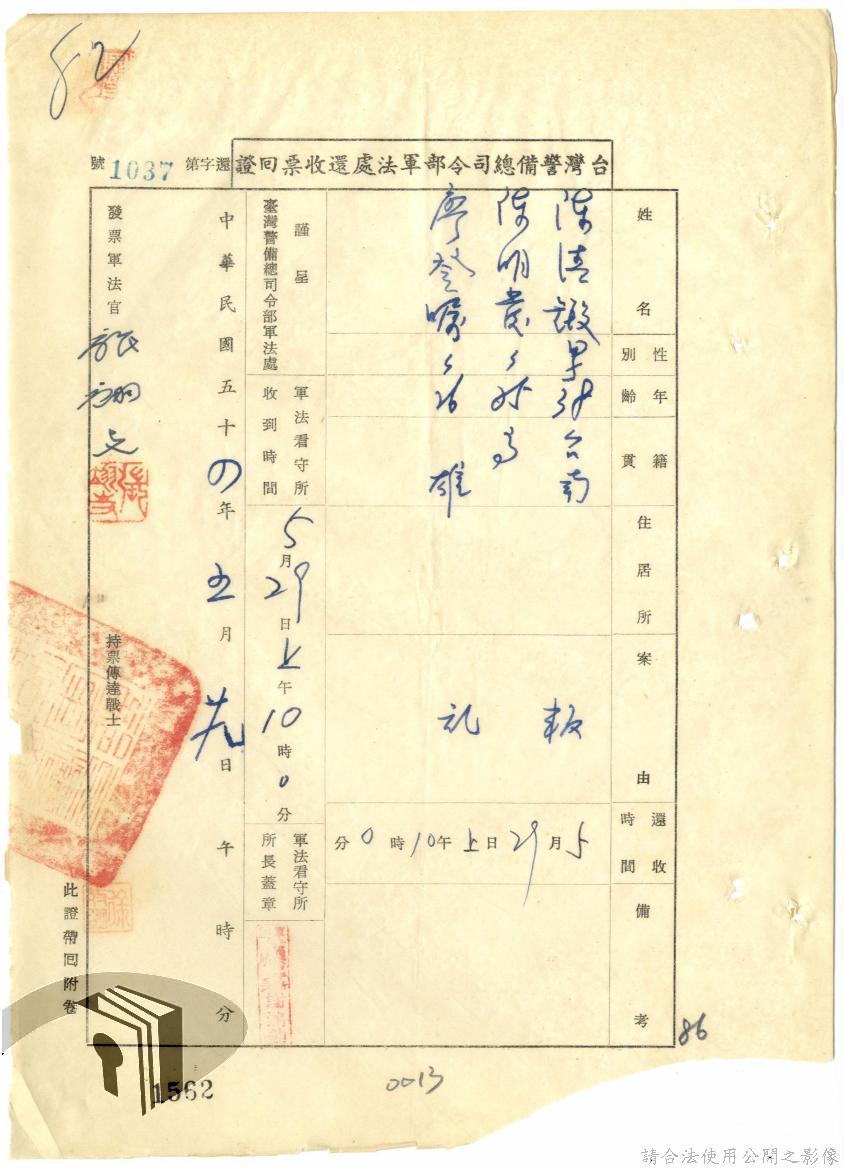 82
台灣警備總司令部軍法處還收票回證
還字第1037號
姓名
性別
年齡
籍貫
住居所
案由
還收時間
備考
陳清鐓 男 38 台南
陳明發 〃 25 高
廖登囑 〃 26 雄
叛
乱
5月29日上午10時0分
謹呈
臺灣警備總司令部軍法處
軍法看守所
收到時間
5月29日上午10時0分
軍法看守所
所長蓋章
中華民國五十四年五月廿九日 午 時 分
發票軍法官
持票傳達戰士
此證帶回附卷
86
1562
0013
請合法使用公開之影像